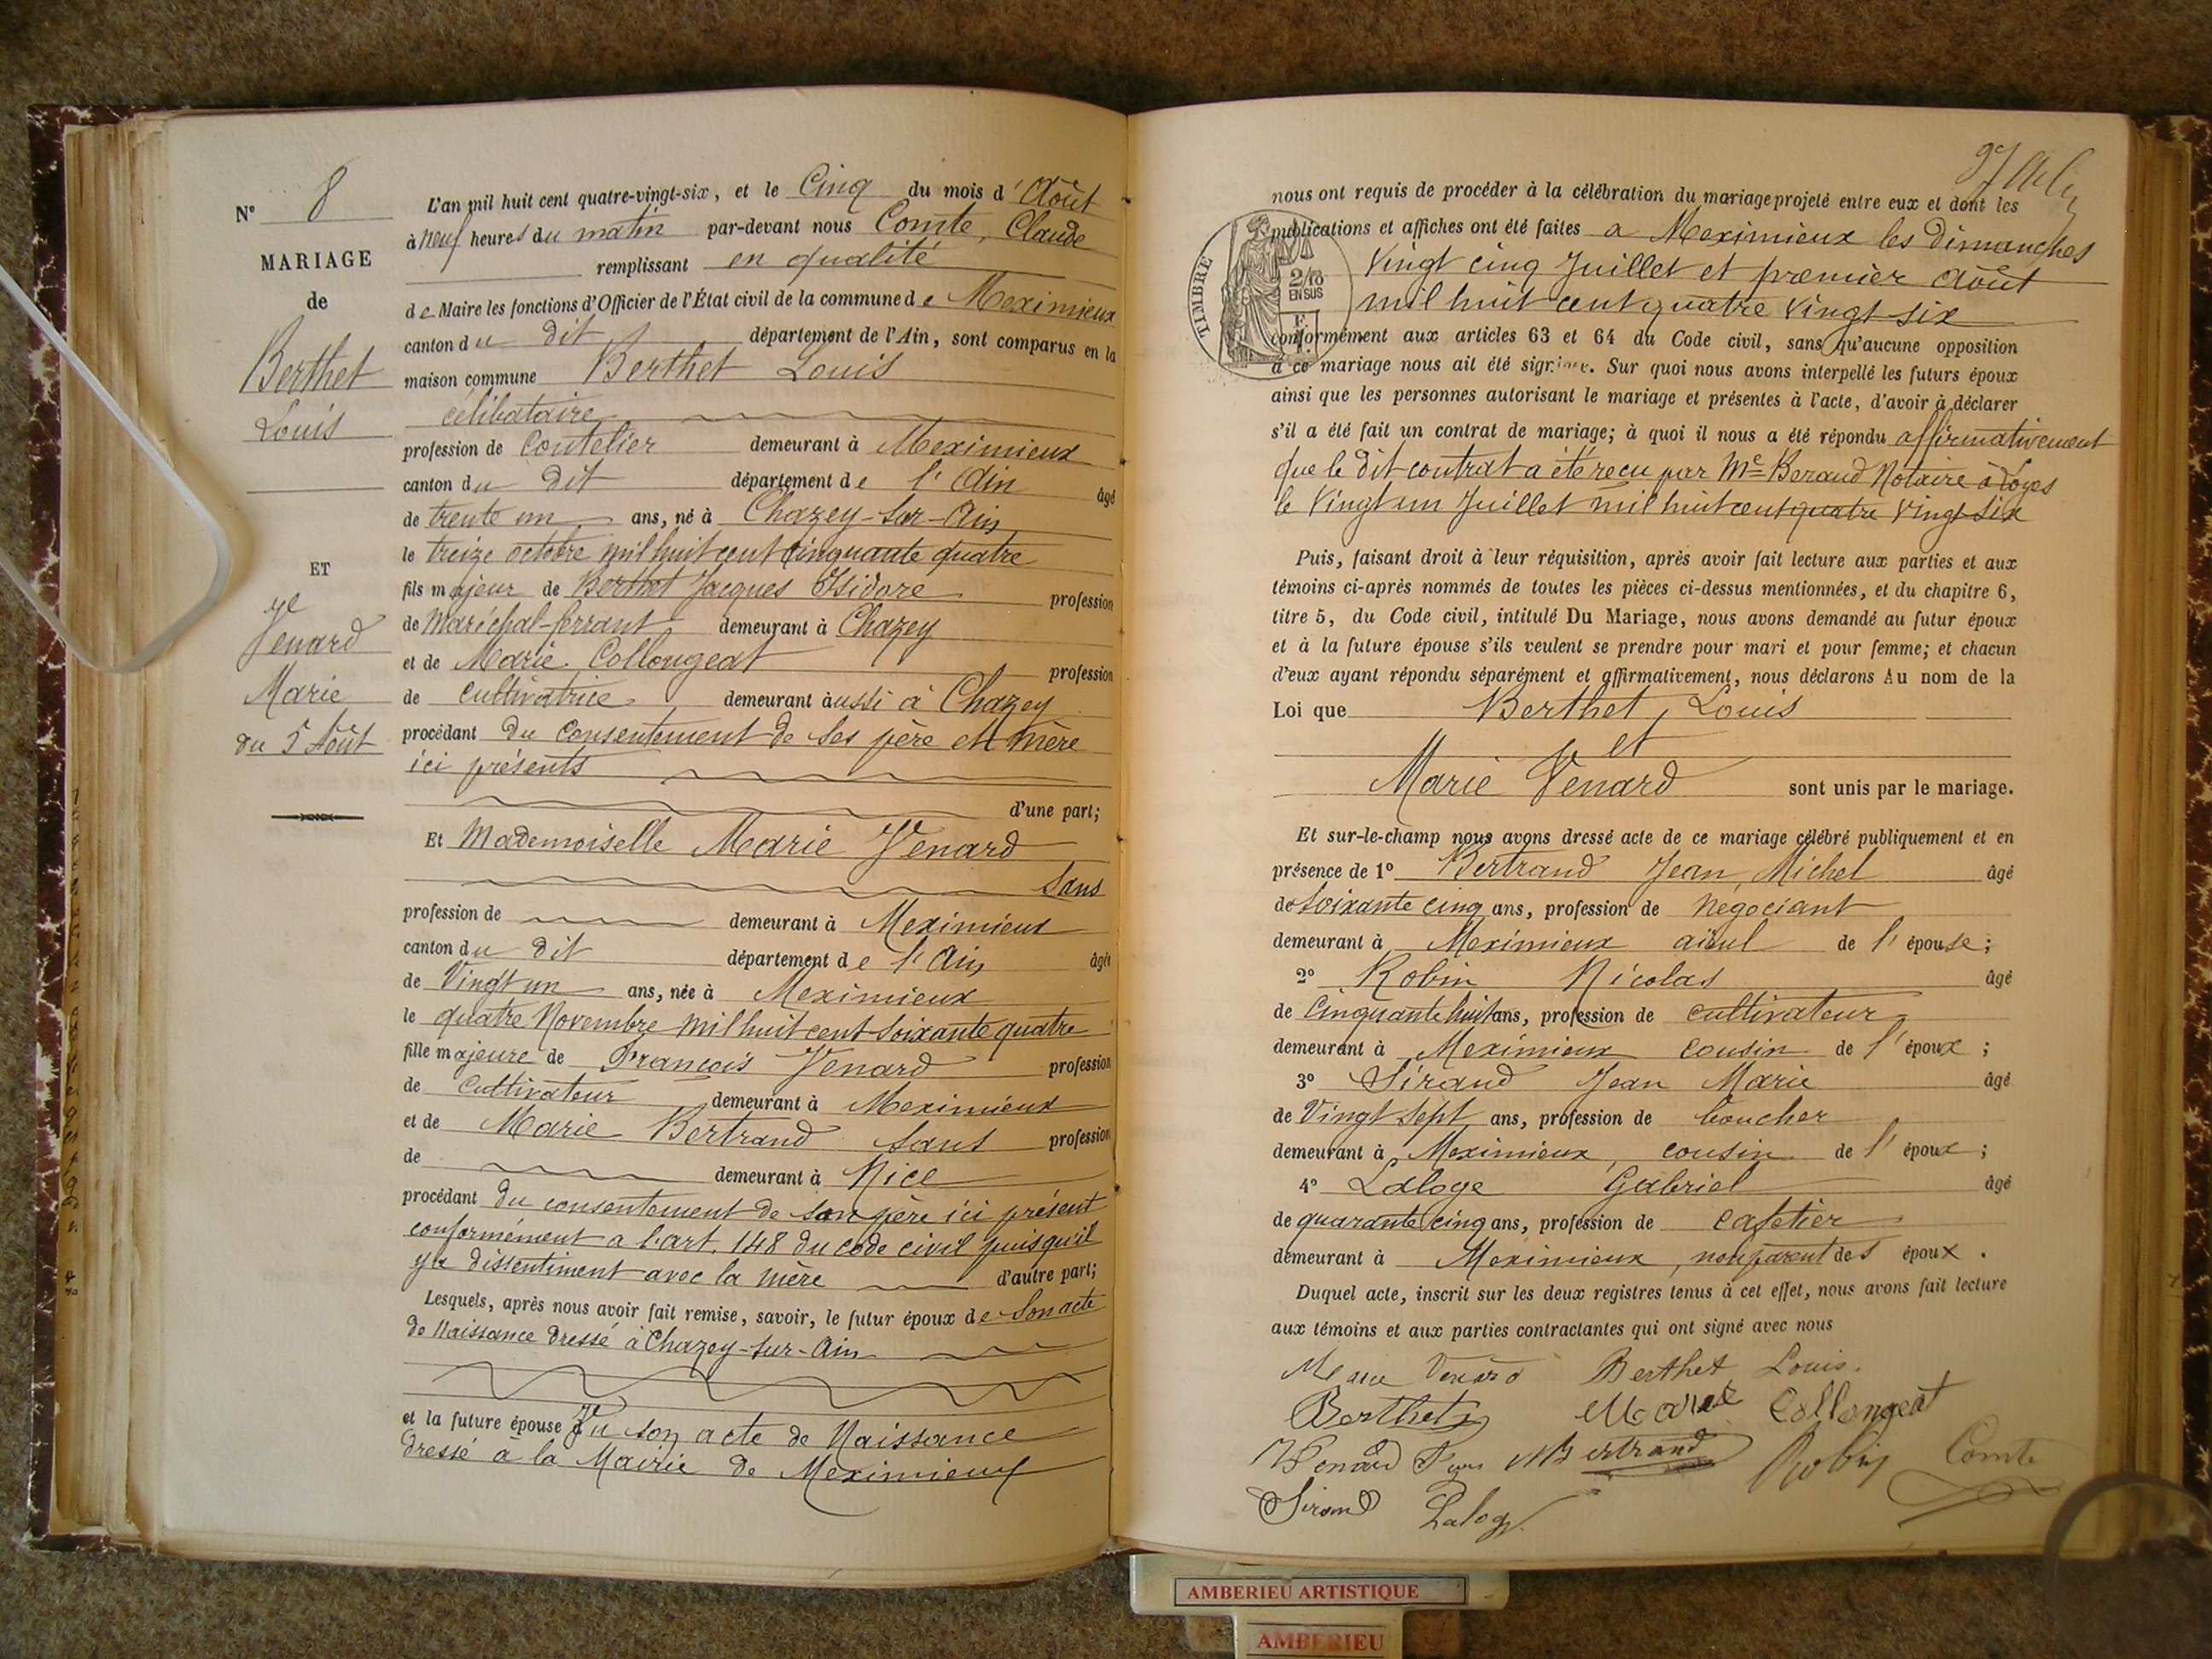 N° 8
MARIAGE
de
Berthet
Louis
ET
Venard
Marie
du 5 Août
L'an mil huit cent quatre-vingt-six, et le Cinq du mois d'Août
à neuf heures du matin par-devant nous Comte, Claude
remplissant en qualité
de Maire les fonctions d'Officier de l'État civil de la commune de Meximieux
canton du dit département de l'Ain, sont comparus en la
maison commune Berthet Louis
célibataire
profession de Coutelier demeurant à Meximieux
canton du dit département de l'Ain âgé
de trente un ans, né à Chazey-Sur-Ain
le treize octobre mil huit cent cinquante quatre
fils majeur de Berthet Jacques Isidore profession
de Maréchal-ferrant demeurant à Chazey
et de Marie Collongeat profession
de cultivatrice demeurant aussi à Chazey
procédant du Consentement de ses père et mère
ici présents
d'une part;
Et Mademoiselle Marie Venard
Sans
profession de demeurant à Meximieux
canton du dit département de l'Ain âgée
de Vingt un ans, née à Meximieux
le quatre Novembre mil huit cent Soixante quatre
fille majeure de François Venard profession
de Cultivateur demeurant à Meximieux
et de Marie Bertrand sans profession
de demeurant à Nice
procédant du consentement de son père ici présent
conformément a l'art. 148 du code civil puisqu'il
y a dissentiment avec la mère d'autre part;
Lesquels, après nous avoir fait remise, savoir, le futur époux de Son acte
de Naissance dressé à Chazey-sur-Ain
et la future épouse Vu son acte de Naissance
dressé à la Mairie de Meximieux
nous ont requis de procéder à la célébration du mariage projeté entre eux et dont les
publications et affiches ont été faites a Meximieux les Dimanches
Vingt cinq Juillet et premier Août
mil huit cent quatre Vingt six
TIMBRE
2/10
EN SUS
conformément aux articles 63 et 64 du Code civil, sans qu'aucune opposition
à ce mariage nous ait été signifiée. Sur quoi nous avons interpellé les futurs époux
ainsi que les personnes autorisant le mariage et présentes à l'acte, d'avoir à déclarer
s'il a été fait un contrat de mariage; à quoi il nous a été répondu affirmativement
que le dit contrat a été reçu par Me Beraud Notaire à Loyes
le Vingt un Juillet mil huit cent quatre Vingt Six
Puis, faisant droit à leur réquisition, après avoir fait lecture aux parties et aux
témoins ci-après nommés de toutes les pièces ci-dessus mentionnées, et du chapitre 6,
titre 5, du Code civil, intitulé Du Mariage, nous avons demandé au futur époux
et à la future épouse s'ils veulent se prendre pour mari et pour femme; et chacun
d'eux ayant répondu séparément et affirmativement, nous déclarons Au nom de la
Loi que Berthet, Louis
et
Marie Venard sont unis par le mariage.
Et sur-le-champ nous avons dressé acte de ce mariage célébré publiquement et en
présence de 1° Bertrand Jean, Michel âgé
de Soixante cinq ans, profession de Negociant
demeurant à Meximieux aïeul de l'épouse;
2° Robin Nicolas âgé
de Cinquante huit ans, profession de cultivateur
demeurant à Meximieux cousin de l'époux;
3° Sirand Jean Marie âgé
de Vingt Sept ans, profession de boucher
demeurant à Meximieux, cousin de l'époux;
4° Laloge Gabriel âgé
de quarante cinq ans, profession de cafetier
demeurant à Meximieux, non parent des époux.
Duquel acte, inscrit sur les deux registres tenus à cet effet, nous avons fait lecture
aux témoins et aux parties contractantes qui ont signé avec nous
Marie Venard Berthet Louis.
Berthet Marie Collongeat
Venard Bertrand Robin Comte
Sirand Laloge
AMBERIEU ARTISTIQUE
AMBERIEU